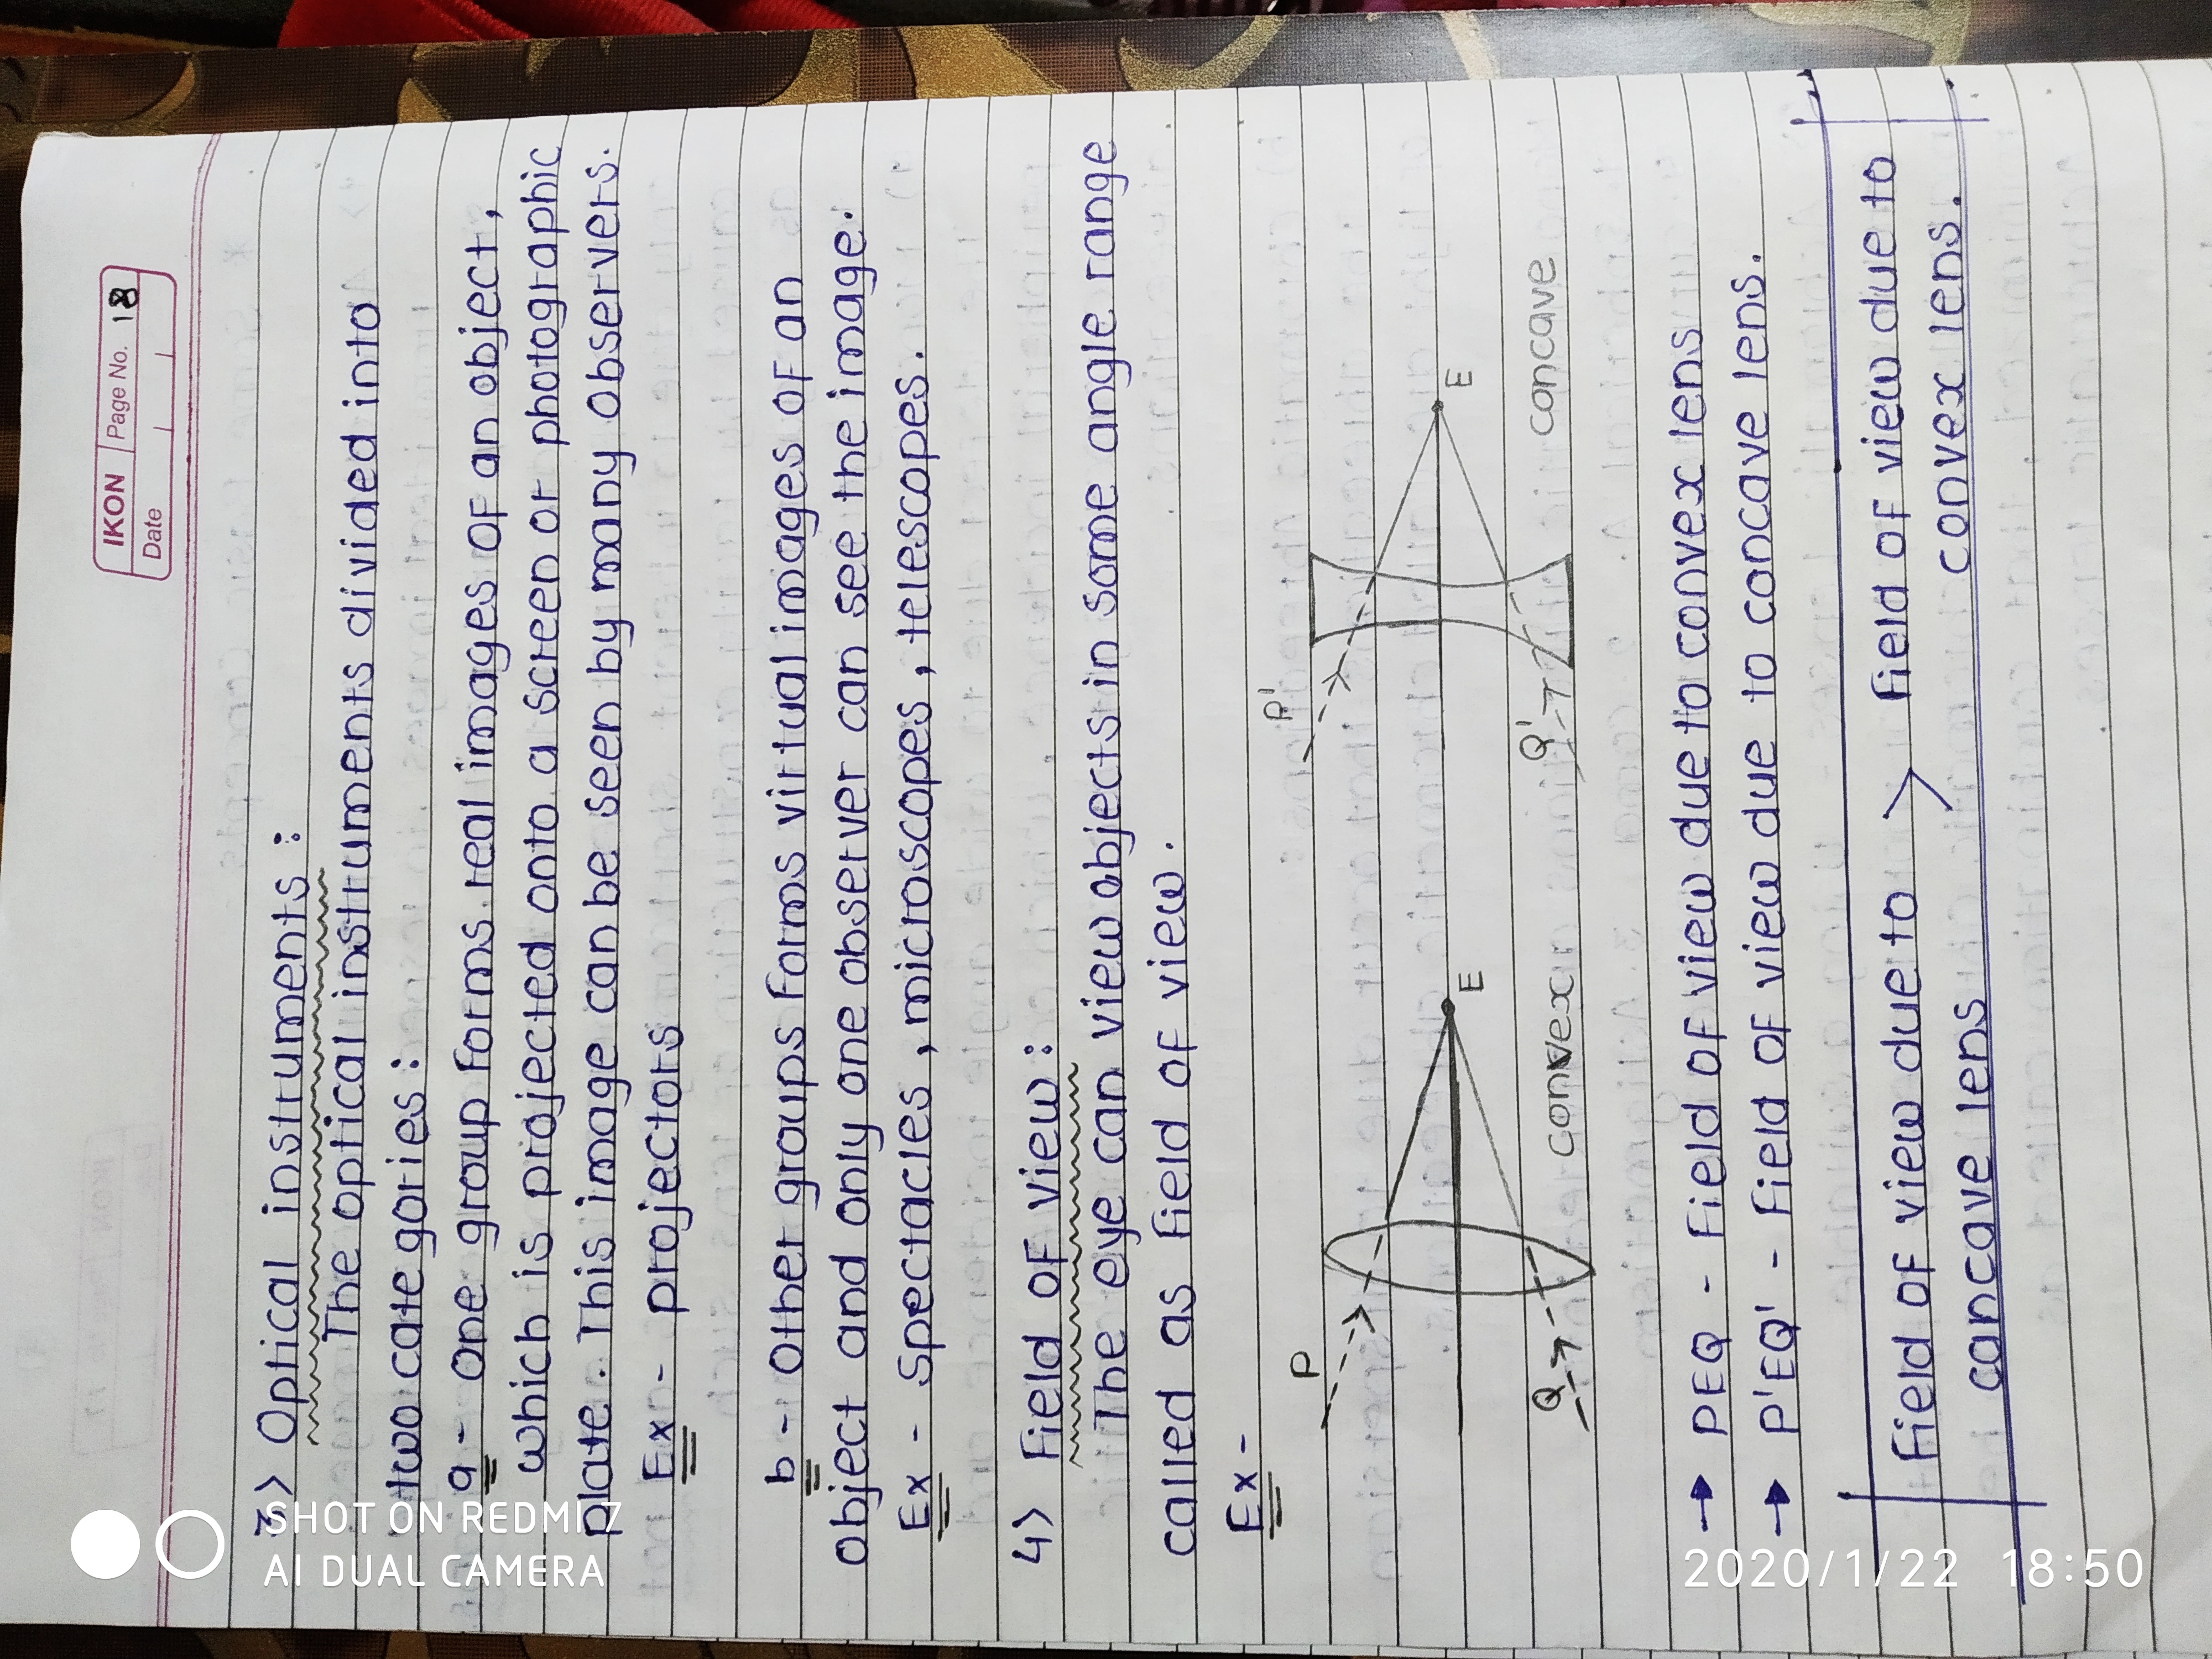 IKON Page No. 18
Date
3> Optical instruments :
The optical instruments divided into
two cate gories :
a - One group forms real images of an object,
which is projected onto a screen or photographic
plate. This image can be seen by many observers.
Ex - projectors
b - Other groups forms virtual images of an
object and only one observer can see the image.
Ex - Spectacles, microscopes, telescopes.
4> Field of view :
The eye can view objects in some angle range
called as field of view.
Ex -
P
E
Q
convex
P'
E
Q'
concave
→ PEQ - Field of view due to convex lens
→ P'EQ' - Field of view due to concave lens.
Field of view due to > Field of view due to
cancave lens convex lens.
SHOT ON REDMI 7
AI DUAL CAMERA
2020/1/22 18:50